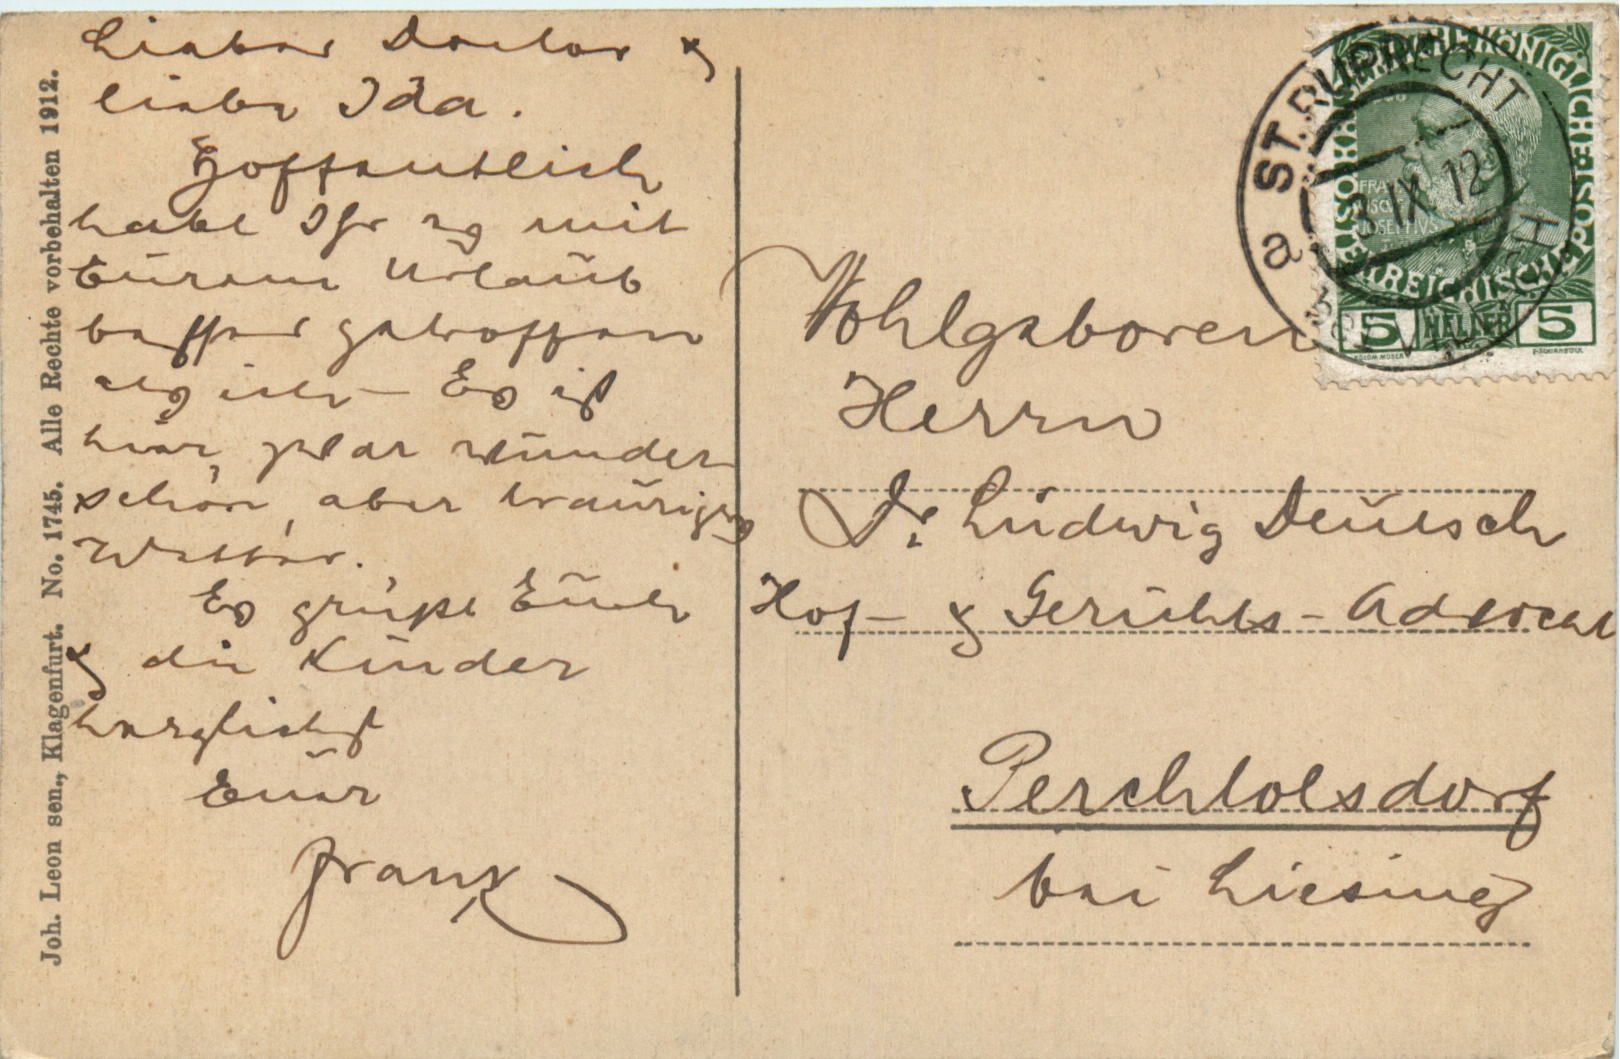 Lieber Doctor &
liebe Ida.
Hoffentlich
habt Ihr es mit
Eurem Urlaub
besser getroffen
als ich – Es ist
hier zwar wunder
schön, aber trauriges
Wetter.
Es grüßt Euch
& die Kinder
herzlichst
Euer
Franz
Joh. Leon sen., Klagenfurt. No. 1745. Alle Rechte vorbehalten 1912.
Wohlgeboren
Herrn
Dr. Ludwig Deutsch
Hof- & Gerichts-Advocat
Perchtolsdorf
bei Liesing
ST. RUPRECHT
a
IX. 12
KAISERLICHE KÖNIGLICHE ÖSTERREICHISCHE POST
5 HELLER 5